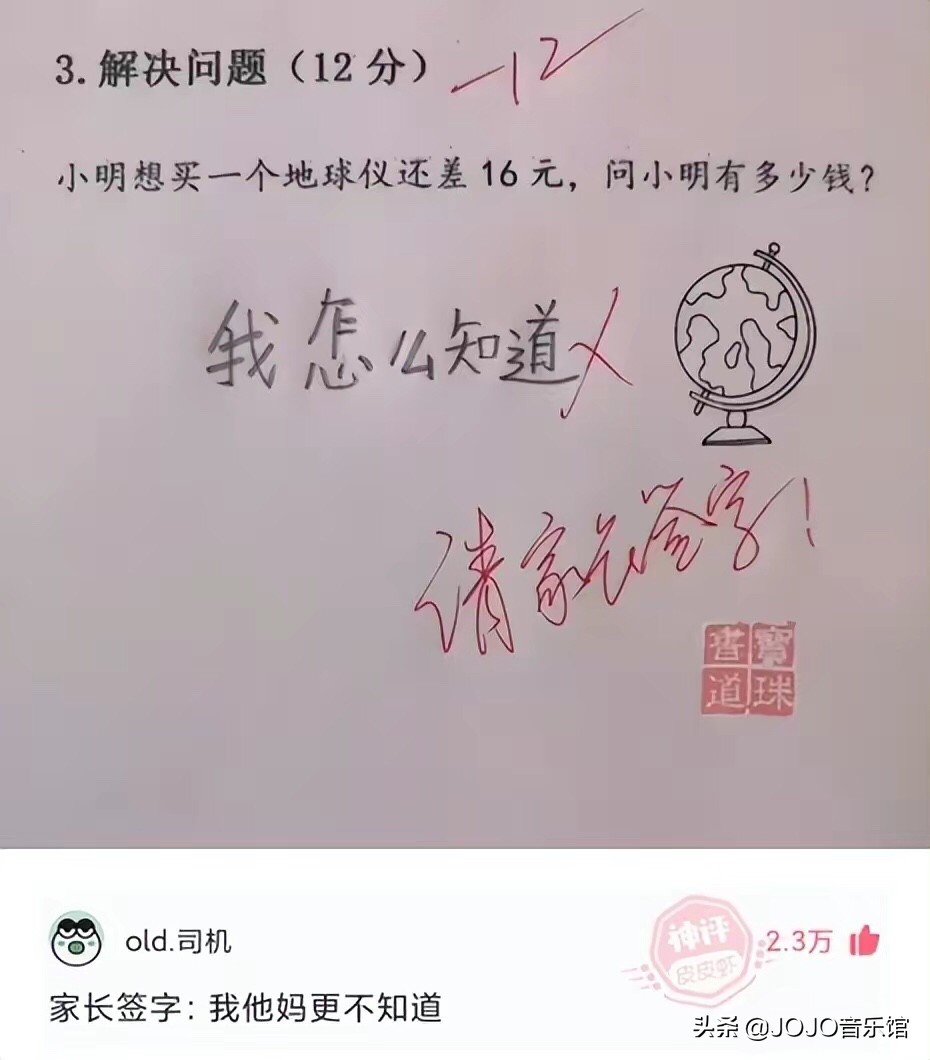 3. 解决问题（12 分） -12
小明想买一个地球仪还差 16 元，问小明有多少钱？
我怎么知道
请家长签字！
書寶
道珠
old.司机
神评
皮皮虾
2.3万
家长签字: 我他妈更不知道
头条 @JOJO音乐馆